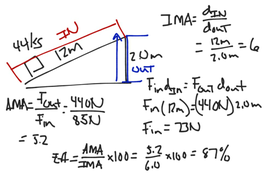 IN
44 kg
12m
2.0m
OUT
IMA = d_IN / d_OUT
= 12m / 2.0m = 6
F_in d_IN = F_OUT d_OUT
F_in (12m) = (440N) 2.0m
F_in = 73N
AMA = F_OUT / F_in = 440N / 85N
= 5.2
= AMA / IMA × 100 = 5.2 / 6.0 × 100 = 87%